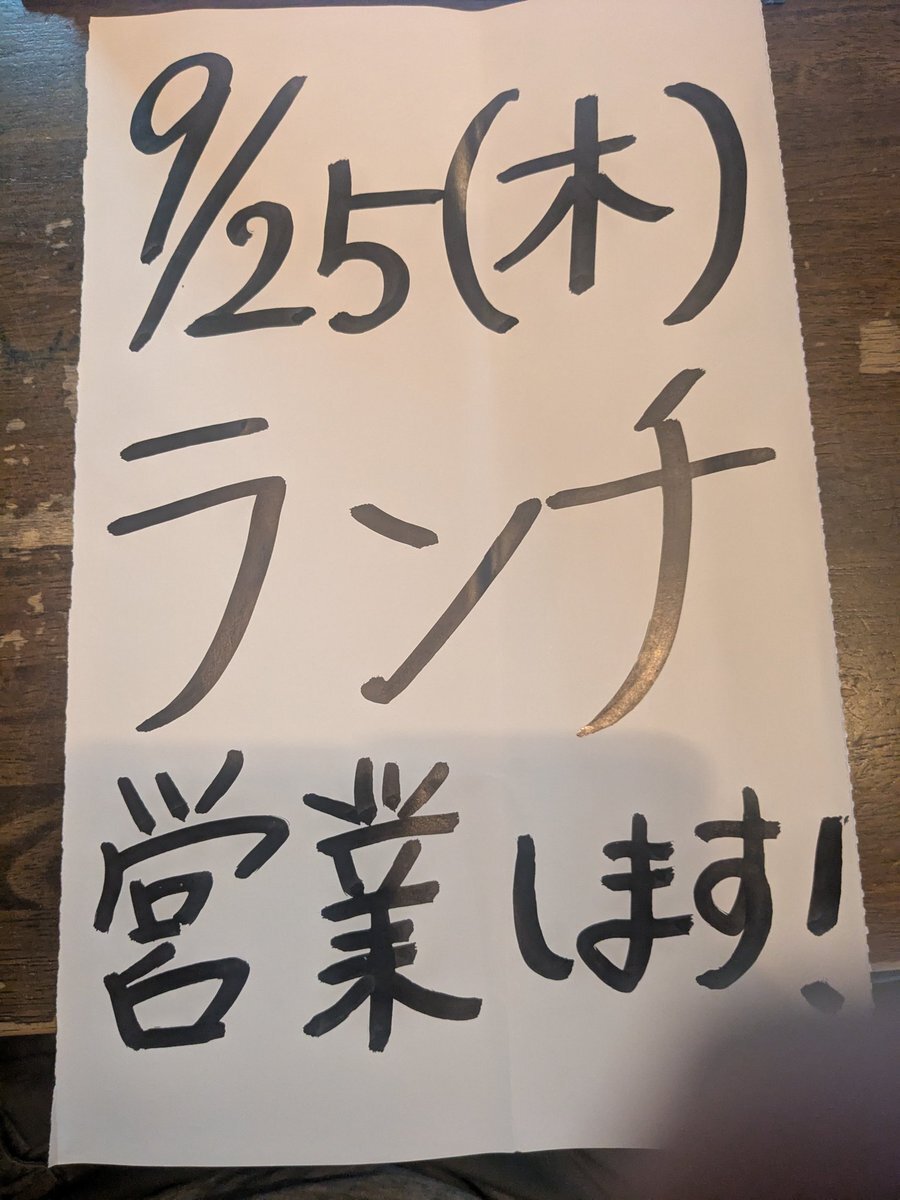 9/25(木)
ランチ
営業します!